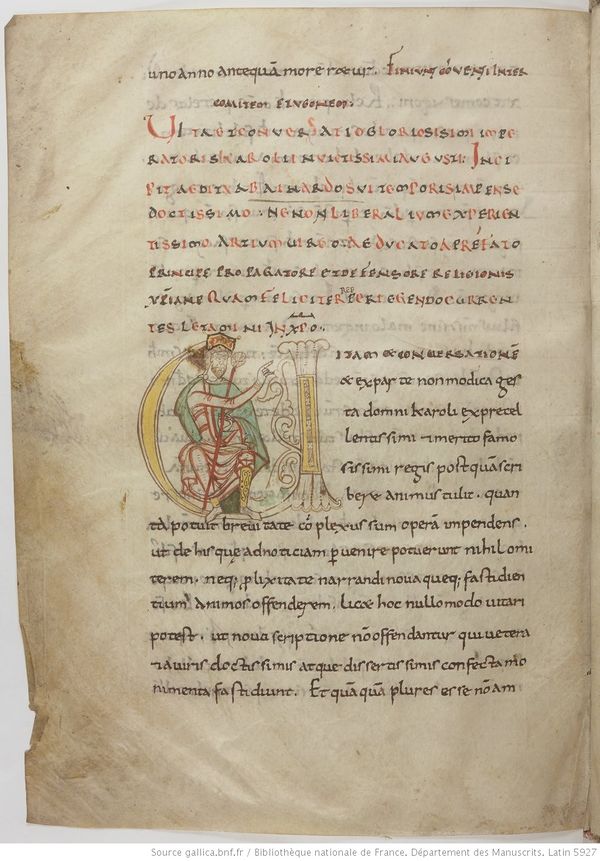 uno anno antequā moreretur. FINIUNT
COMITEM
UITA ET CONUERSATIO GLORIOSISSIMI IMPE
RATORIS KAROLI INUICTISSIMI AUGUSTI: INCI
PIT AEDITA BAINARDO SUI TEMPORIS IMPENSE
DOCTISSIMO. NE NON LIBERALIUM EXPERIEN
TISSIMO ARTIUM UIRO ET AEDUCATO A PREFATO
PRINCIPE PROPAGATORE ET DEFENSORE RELIGIONIS
XPIANE QUAM FELICITER PERLEGENDO CURREN
TES LETAMINI IN XPO.
UITAM et CONUERSATIONĒ
et ex parte non modica ges
ta domni karoli ex precel
lentissimi & merito famo
sissimi regis postquā scri
bere animus tulit. quan
ta potuit breuitate cōplexus sum operā inpendens.
ut de his quę ad noticiam puenire potuerunt nihil omi
terem. neq; plixitate narrandi noua queq; fastidien
tium animos offenderem. Licet hoc nullo modo uitari
potest. ut noua scriptione nō offendantur qui uetera
& a uiris doctissimis atque dissertissimis confecta mo
nimenta fastidiunt. Et quāquā plures esse nō am
Source gallica.bnf.fr / Bibliothèque nationale de France. Département des Manuscrits. Latin 5927